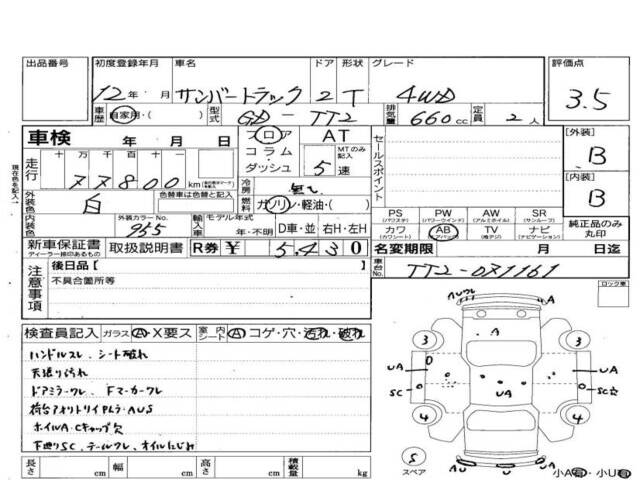 出品番号 初度登録年月 車名 ドア 形状 グレード 評価点
12年 月 サンバートラック 2 T 4WD 3.5
車歴 自家用・( ) 型式 GD-TT2 排気量 660cc 定員 2人
車検 年 月 日 フロア コラム・ダッシュ AT 5速 MTのみ記入 セールスポイント [外装] B
走行 十 万 千 百 十 一
77800 km
冷房
外装色 白 色替車は色替と記入 燃料 ガソリン・軽油・( ) [内装] B
現在色を記入
内装色 外装カラーNo. 955 輸入車 モデル年式 年・不明 D車・並 右H・左H
PS (パワステ) PW (パワーウインド) AW (アルミホイル) SR (サンルーフ)
カワ (カワシート) AB (エアバック) TV (地デジ) ナビ (ナビゲーション) 純正品のみ丸印
新車保証書 ディーラー捺印あるもの 取扱説明書 R券 ¥ 5,430 名変期限 月 日迄
注意事項 後日品[ ] 車台No. TT2-071161
不具合箇所等 ロック車
検査員記入 ガラス A・X要ス 室内シート A コゲ・穴・汚れ・破れ
ハンドルスレ、シート破れ
天張り汚れ
ドアミラーワレ、Fマーカーワレ
荷台アオリトリイPLラ・AUS
ホイルA・Cキャップ欠
下廻りSC、テールワレ、オイルにじみ
長さ cm 幅 cm 高さ cm 積載量 kg
A
A
3 3
UA UA UA
SC SC
4 4
S スペア
U U A
小A有・小U有